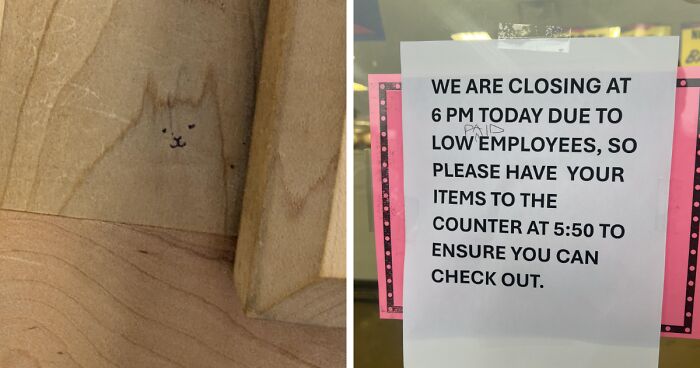 WE ARE CLOSING AT
6 PM TODAY DUE TO
PAID
LOW EMPLOYEES, SO
PLEASE HAVE YOUR
ITEMS TO THE
COUNTER AT 5:50 TO
ENSURE YOU CAN
CHECK OUT.